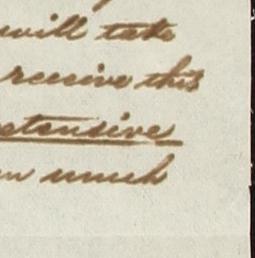 will take
receive this
etensive
much